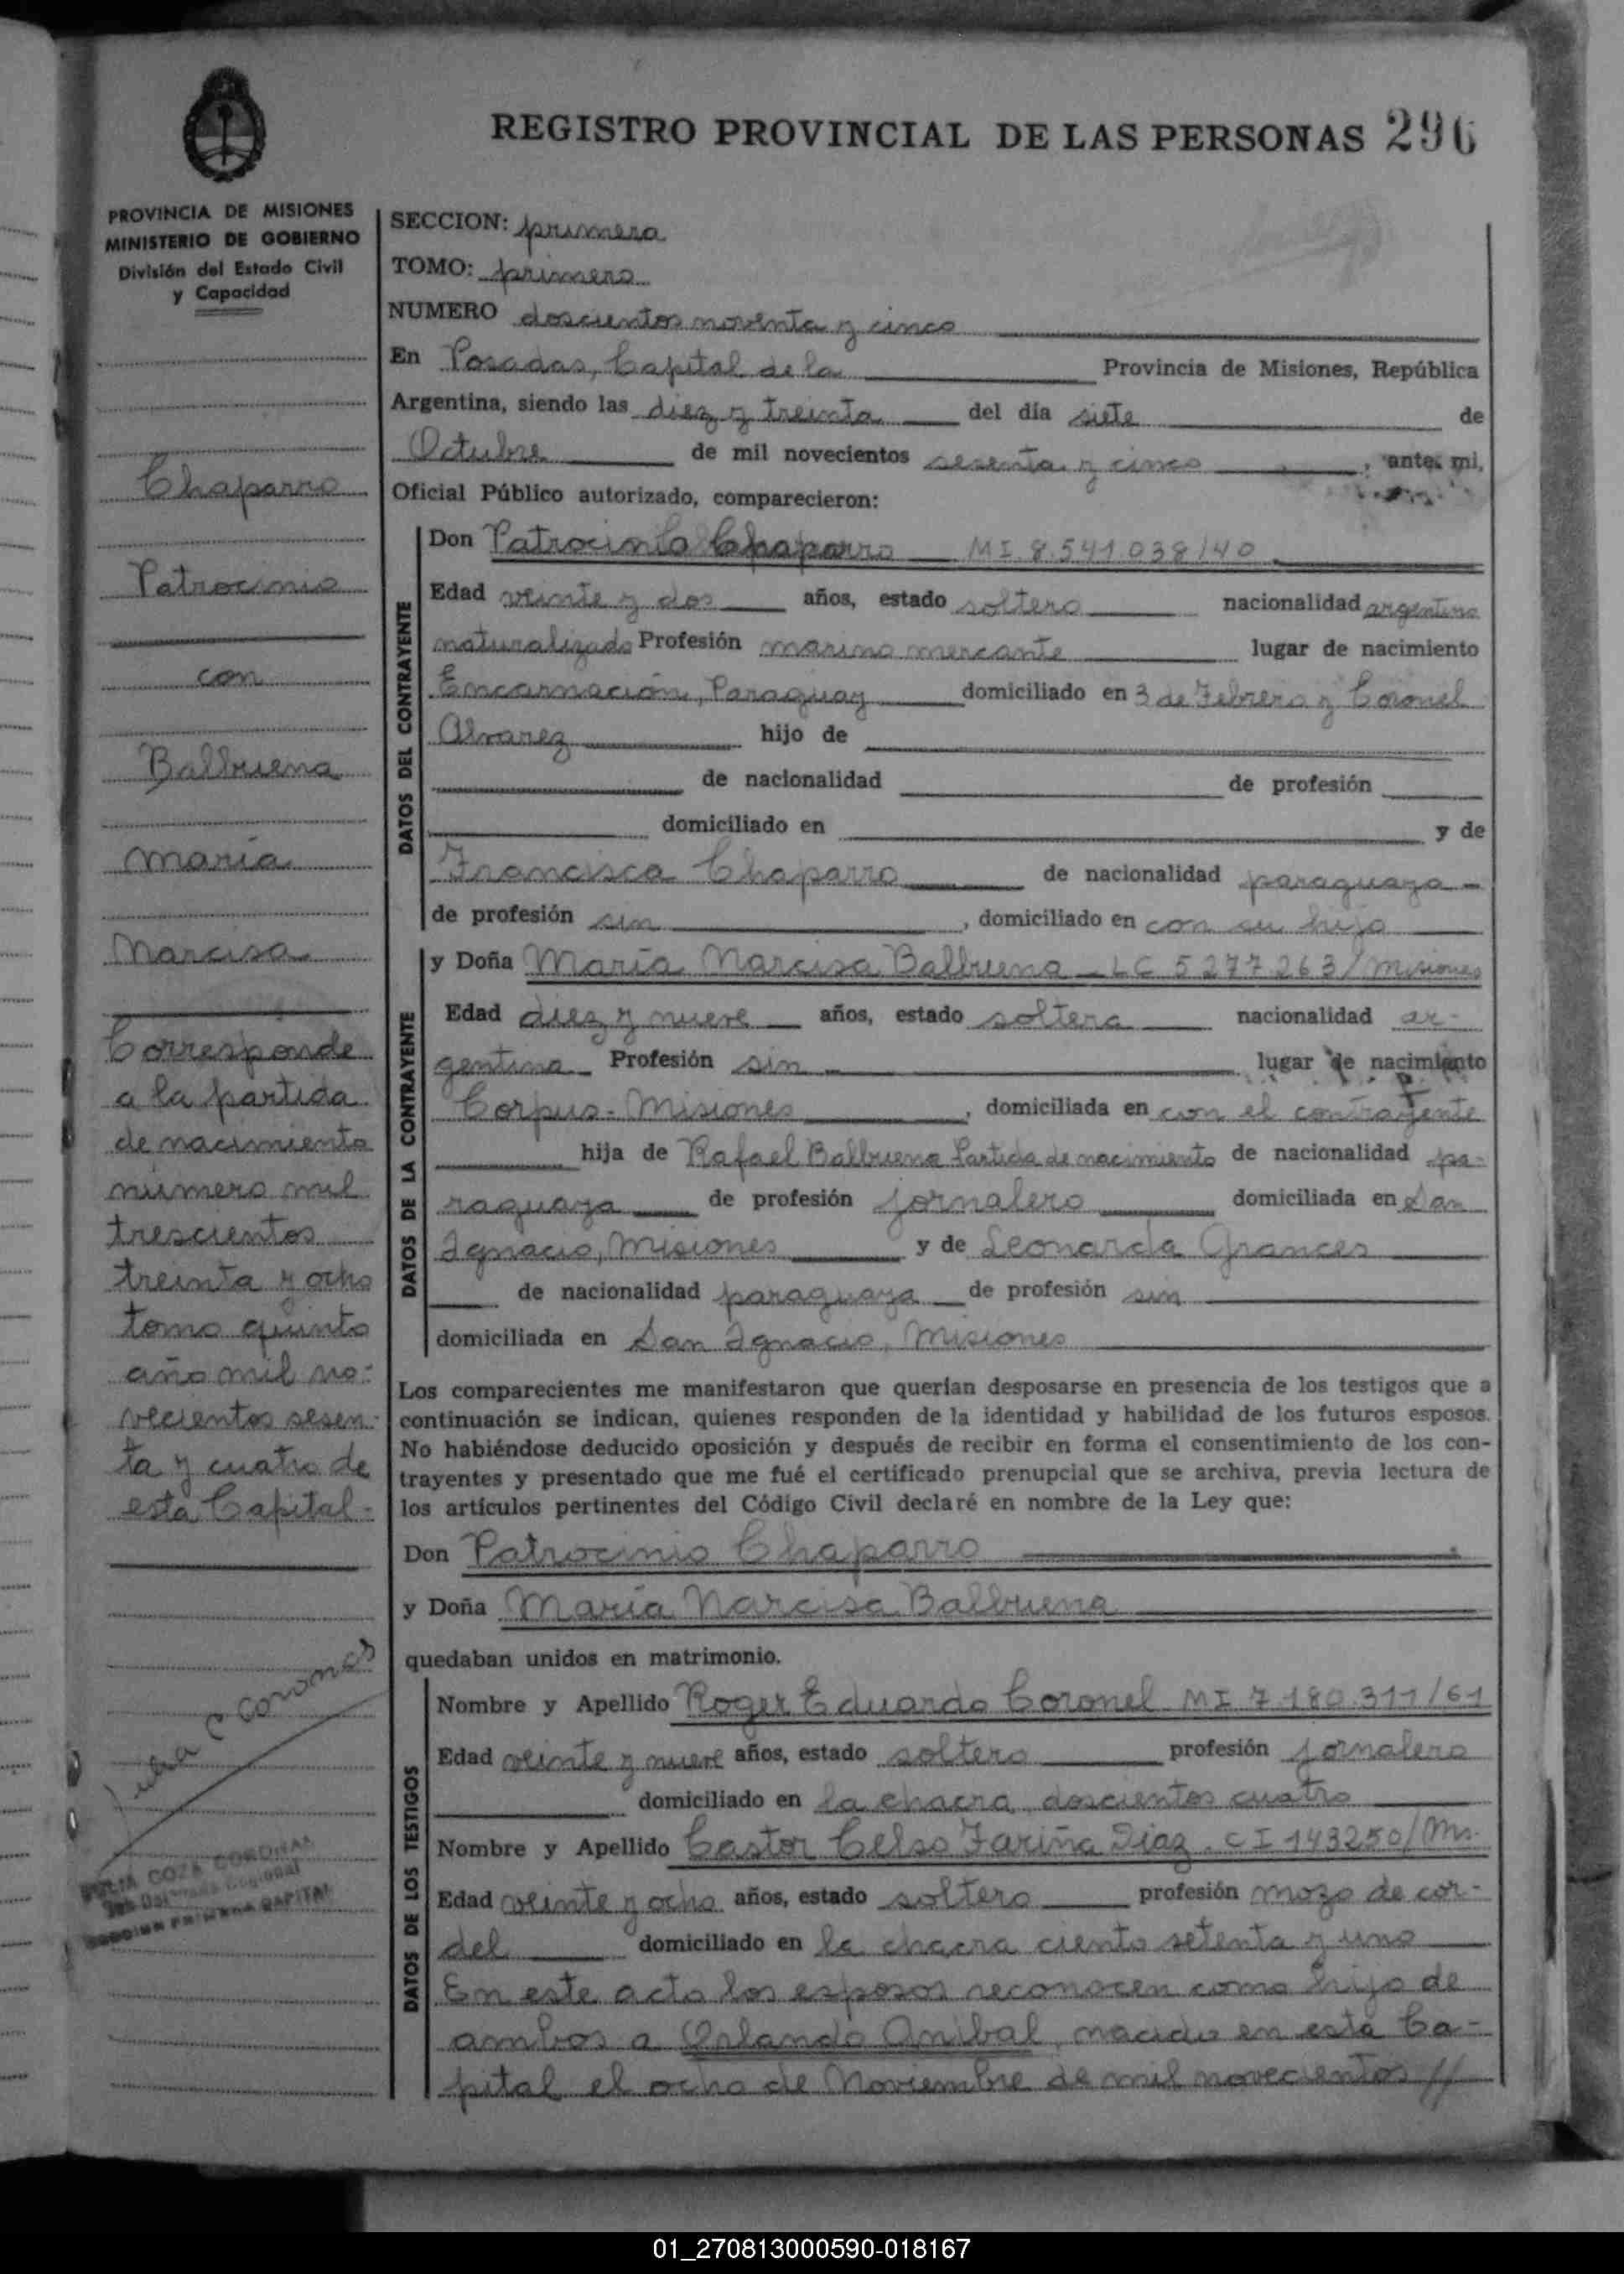 REGISTRO PROVINCIAL DE LAS PERSONAS 296
PROVINCIA DE MISIONES
MINISTERIO DE GOBIERNO
División del Estado Civil
y Capacidad
Chaparro
Patrocinio
con
Balbuena
María
Narcisa
Corresponde
a la partida
de nacimiento
número mil
trescientos
treinta y ocho
tomo quinto
año mil no-
vecientos sesen-
ta y cuatro de
esta Capital-
Julia C Coronas
JULIA COZA CORONAS
SECCION PRIMERA CAPITAL
SECCION: primera
TOMO: primero
NUMERO doscientos noventa y cinco
En Posadas, Capital de la Provincia de Misiones, República
Argentina, siendo las diez y treinta del día siete de
Octubre de mil novecientos sesenta y cinco, ante mi,
Oficial Público autorizado, comparecieron:
DATOS DEL CONTRAYENTE
Don Patrocinio Chaparro MI 8.541.038/40
Edad veinte y dos años, estado soltero nacionalidad argentino
naturalizado Profesión marino mercante lugar de nacimiento
Encarnación, Paraguay domiciliado en 3 de Febrero y Coronel
Alvarez hijo de
de nacionalidad de profesión
domiciliado en y de
Francisca Chaparro de nacionalidad paraguaya -
de profesión sin, domiciliado en con su hijo
DATOS DE LA CONTRAYENTE
y Doña María Narcisa Balbuena - LC 5277263/Misiones
Edad diez y nueve años, estado soltera nacionalidad ar-
gentina Profesión sin lugar de nacimiento
Corpus - Misiones, domiciliada en con el contrayente
hija de Rafael Balbuena Partida de nacimiento de nacionalidad pa-
raguaya de profesión jornalero domiciliada en San
Ignacio, Misiones y de Leonarda Grances
de nacionalidad paraguaya de profesión sin
domiciliada en San Ignacio, Misiones
Los comparecientes me manifestaron que querían desposarse en presencia de los testigos que a
continuación se indican, quienes responden de la identidad y habilidad de los futuros esposos.
No habiéndose deducido oposición y después de recibir en forma el consentimiento de los con-
trayentes y presentado que me fué el certificado prenupcial que se archiva, previa lectura de
los artículos pertinentes del Código Civil declaré en nombre de la Ley que:
Don Patrocinio Chaparro
y Doña María Narcisa Balbuena
quedaban unidos en matrimonio.
DATOS DE LOS TESTIGOS
Nombre y Apellido Roger Eduardo Coronel MI 7.180.311/61
Edad veinte y nueve años, estado soltero profesión jornalero
domiciliado en la chacra doscientos cuatro
Nombre y Apellido Castor Celso Fariña Diaz. CI 143250/Ms.
Edad veinte y ocho años, estado soltero profesión mozo de cor-
del domiciliado en la chacra ciento setenta y uno
En este acto los esposos reconocen como hijo de
ambos a Orlando Anibal, nacido en esta Ca-
pital el ocho de Noviembre de mil novecientos //
01_270813000590-018167